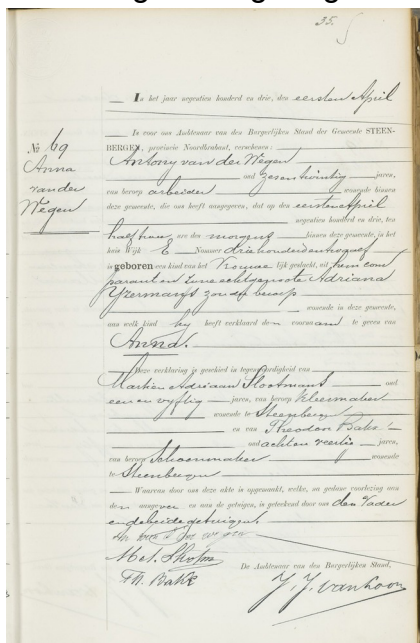 35.
In het jaar negentien honderd en drie, den eersten April
Is voor ons Ambtenaar van den Burgerlijken Stand der Gemeente STEEN-
BERGEN, provincie Noordbrabant, verschenen:
No 69
Anna
van der
Wegen
Antony van der Wegen
oud zesentwintig jaren,
van beroep arbeider wonende binnen
deze gemeente, die ons heeft aangegeven, dat op den eersten April
negentien honderd en drie, ten
half twee ure des morgens binnen deze gemeente, in het
huis Wijk E Nummer driehonderd
is geboren een kind van het Vrouwe lijk geslacht, uit hem com
parant en zijne echtgenoote Adriana
IJzermans zonder beroep
wonende in deze gemeente,
aan welk kind hij heeft verklaard den voornaam te geven van
Anna.
Deze verklaring is geschied in tegenwoordigheid van
Martien Adriaan Slootmans oud
een en vijftig jaren, van beroep kleermaker
wonende te Steenbergen
en van Theodor Bakx
oud acht en veertig jaren,
van beroep Schoenmaker wonende
te Steenbergen
Waarvan door ons deze akte is opgemaakt, welke, na gedane voorlezing aan
den aangever en aan de getuigen, is geteekend door ons den Vader
en de beide getuigen.
Th. Bakx
De Ambtenaar van den Burgerlijken Stand,
J. J. van Loon